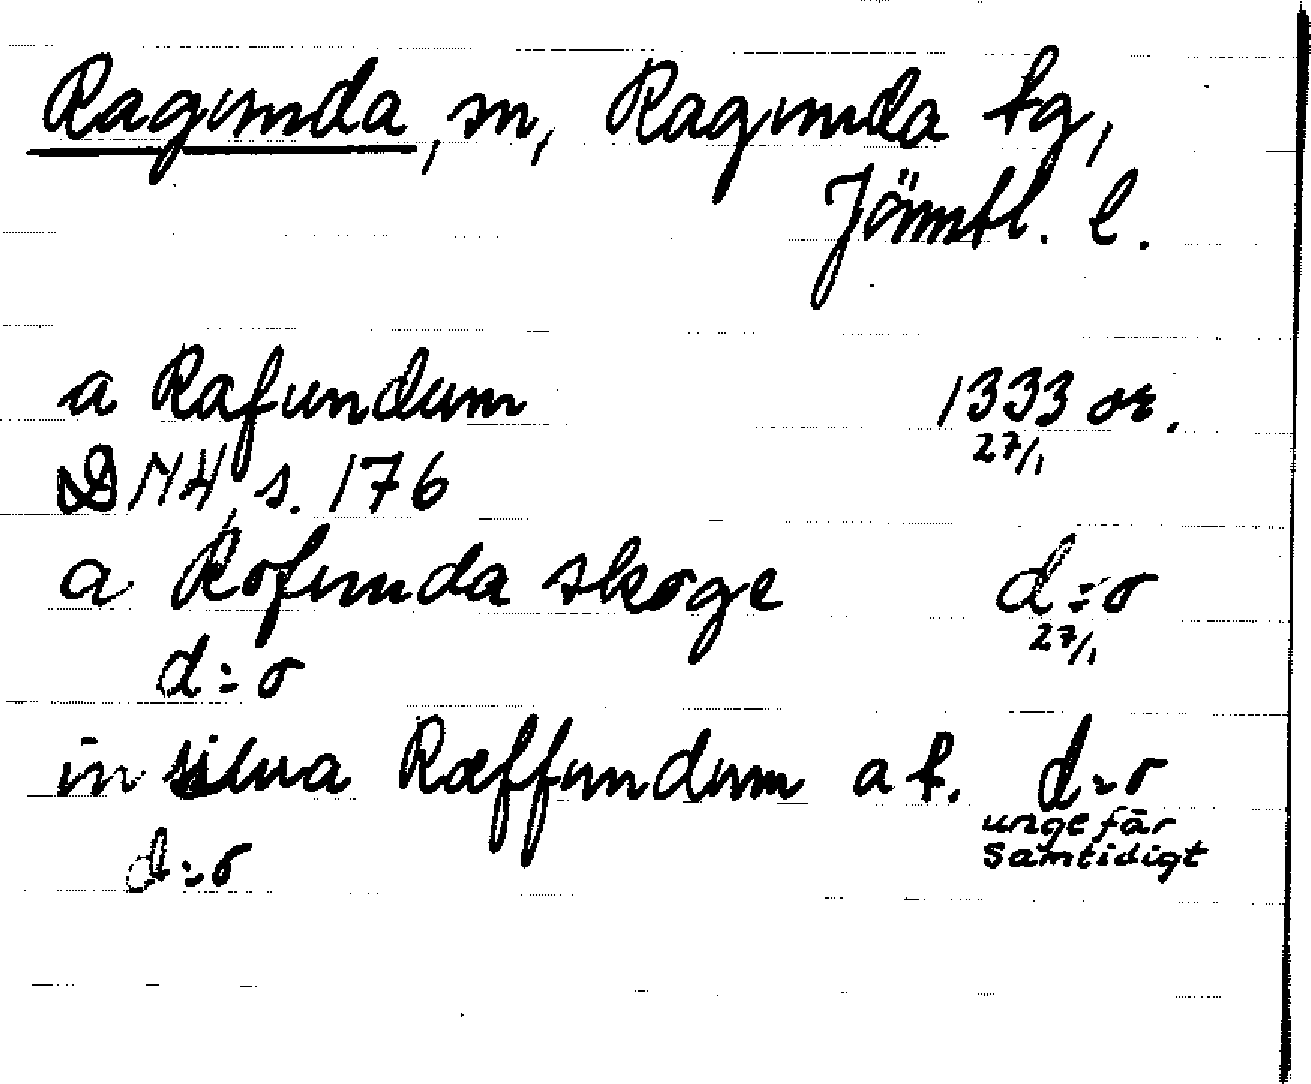 Ragunda, sn, Ragunda tg,
Jämtl. l.
a Rafundum 1333 or.
27/1
DN 4, s. 176
a Rofunda skoge d:o
27/1
d:o
in silua Ræffundum a t. d:o
ungefär
samtidigt
d:o